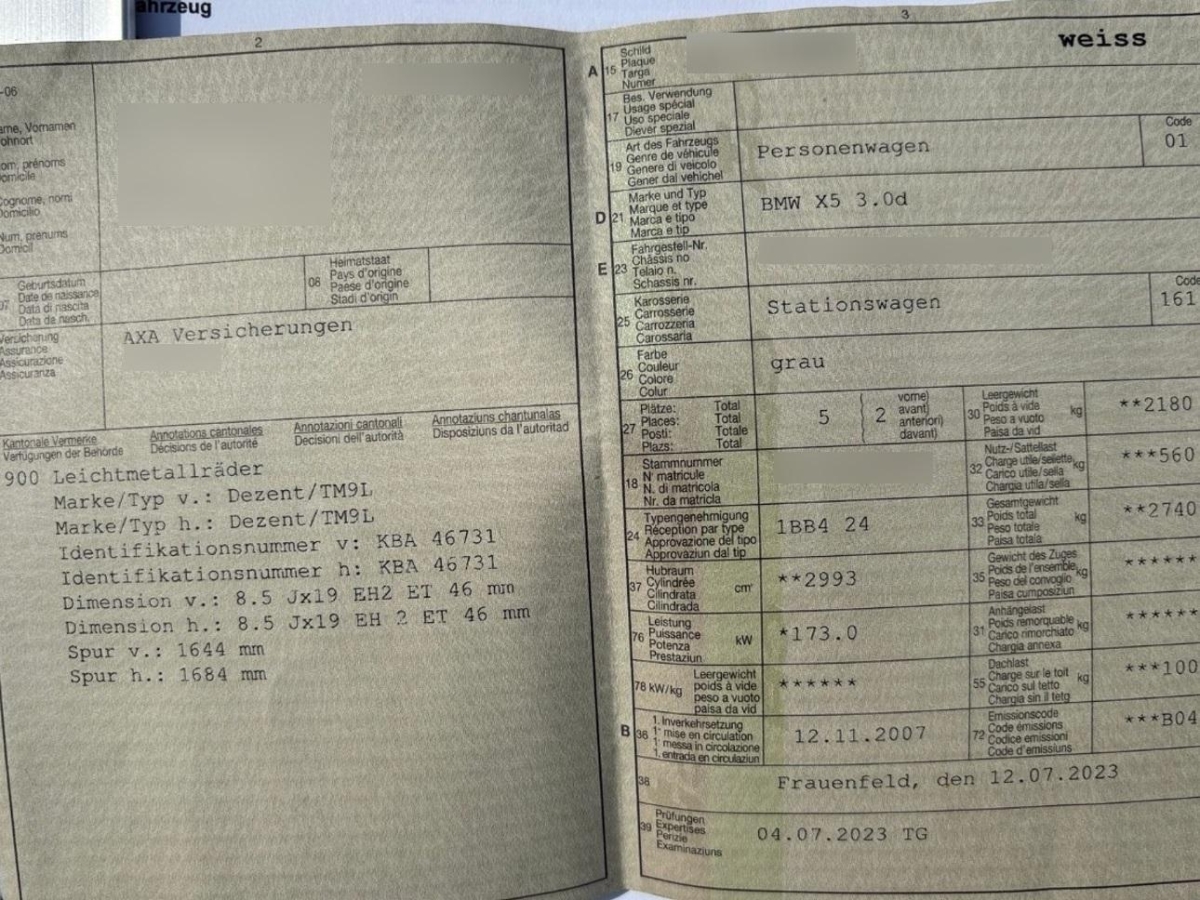 ahrzeug
2
-06
ame, Vornamen
ohnort
om, prénoms
omicile
ognome, nomi
Domicilio
Num, prenums
Domicil
07
Geburtsdatum
Date de naissance
Data di nascita
Data da nasch.
08
Heimatstaat
Pays d'origine
Paese d'origine
Stadi d'origin
Versicherung
Assurance
Assicurazione
Assicuranza
AXA Versicherungen
Kantonale Vermerke
Verfügungen der Behörde
Annotations cantonales
Décisions de l'autorité
Annotazioni cantonali
Decisioni dell'autorità
Annotaziuns chantunalas
Disposiziuns da l'autoritad
900 Leichtmetallräder
Marke/Typ v.: Dezent/TM9L
Marke/Typ h.: Dezent/TM9L
Identifikationsnummer v: KBA 46731
Identifikationsnummer h: KBA 46731
Dimension v.: 8.5 Jx19 EH2 ET 46 mm
Dimension h.: 8.5 Jx19 EH 2 ET 46 mm
Spur v.: 1644 mm
Spur h.: 1684 mm
3
A 15
Schild
Plaque
Targa
Numer
weiss
17
Bes. Verwendung
Usage spécial
Uso speciale
Diever spezial
19
Art des Fahrzeugs
Genre de véhicule
Genere di veicolo
Gener dal vehichel
Personenwagen
Code
01
D 21
Marke und Typ
Marque et type
Marca e tipo
Marca e tip
BMW X5 3.0d
E 23
Fahrgestell-Nr.
Châssis no
Telaio n.
Schassis nr.
25
Karosserie
Carrosserie
Carrozzeria
Carossaria
Stationswagen
Code
161
26
Farbe
Couleur
Colore
Colur
grau
27
Plätze: Total
Places: Total
Posti: Totale
Plazs: Total
5
2
vorne)
avant)
anteriori)
davant)
30
Leergewicht
Poids à vide
Peso a vuoto
Paisa da vid
kg
**2180
18
Stammnummer
N° matricule
N. di matricola
Nr. da matricla
32
Nutz-/Sattellast
Charge utile/sellette
Carico utile/sella
Chargia utila/sella
kg
***560
24
Typengenehmigung
Réception par type
Approvazione del tipo
Approvaziun dal tip
1BB4 24
33
Gesamtgewicht
Poids total
Peso totale
Paisa totala
kg
**2740
37
Hubraum
Cylindrée
Cilindrata
Cilindrada
cm³
**2993
35
Gewicht des Zuges
Poids de l'ensemble
Peso del convoglio
Paisa cumposiziun
kg
******
76
Leistung
Puissance
Potenza
Prestaziun
kW
*173.0
31
Anhängelast
Poids remorquable
Carico rimorchiato
Chargia annexa
kg
******
78 kW/kg
Leergewicht
poids à vide
peso a vuoto
paisa da vid
******
55
Dachlast
Charge sur le toit
Carico sul tetto
Chargia sin il tetg
kg
***100
B 36
1. Inverkehrsetzung
1e mise en circulation
1a messa in circolazione
1. entrada en circulaziun
12.11.2007
72
Emissionscode
Code émissions
Codice emissioni
Code d'emissiuns
***B04
38
Frauenfeld, den 12.07.2023
39
Prüfungen
Expertises
Perizie
Examinaziuns
04.07.2023 TG